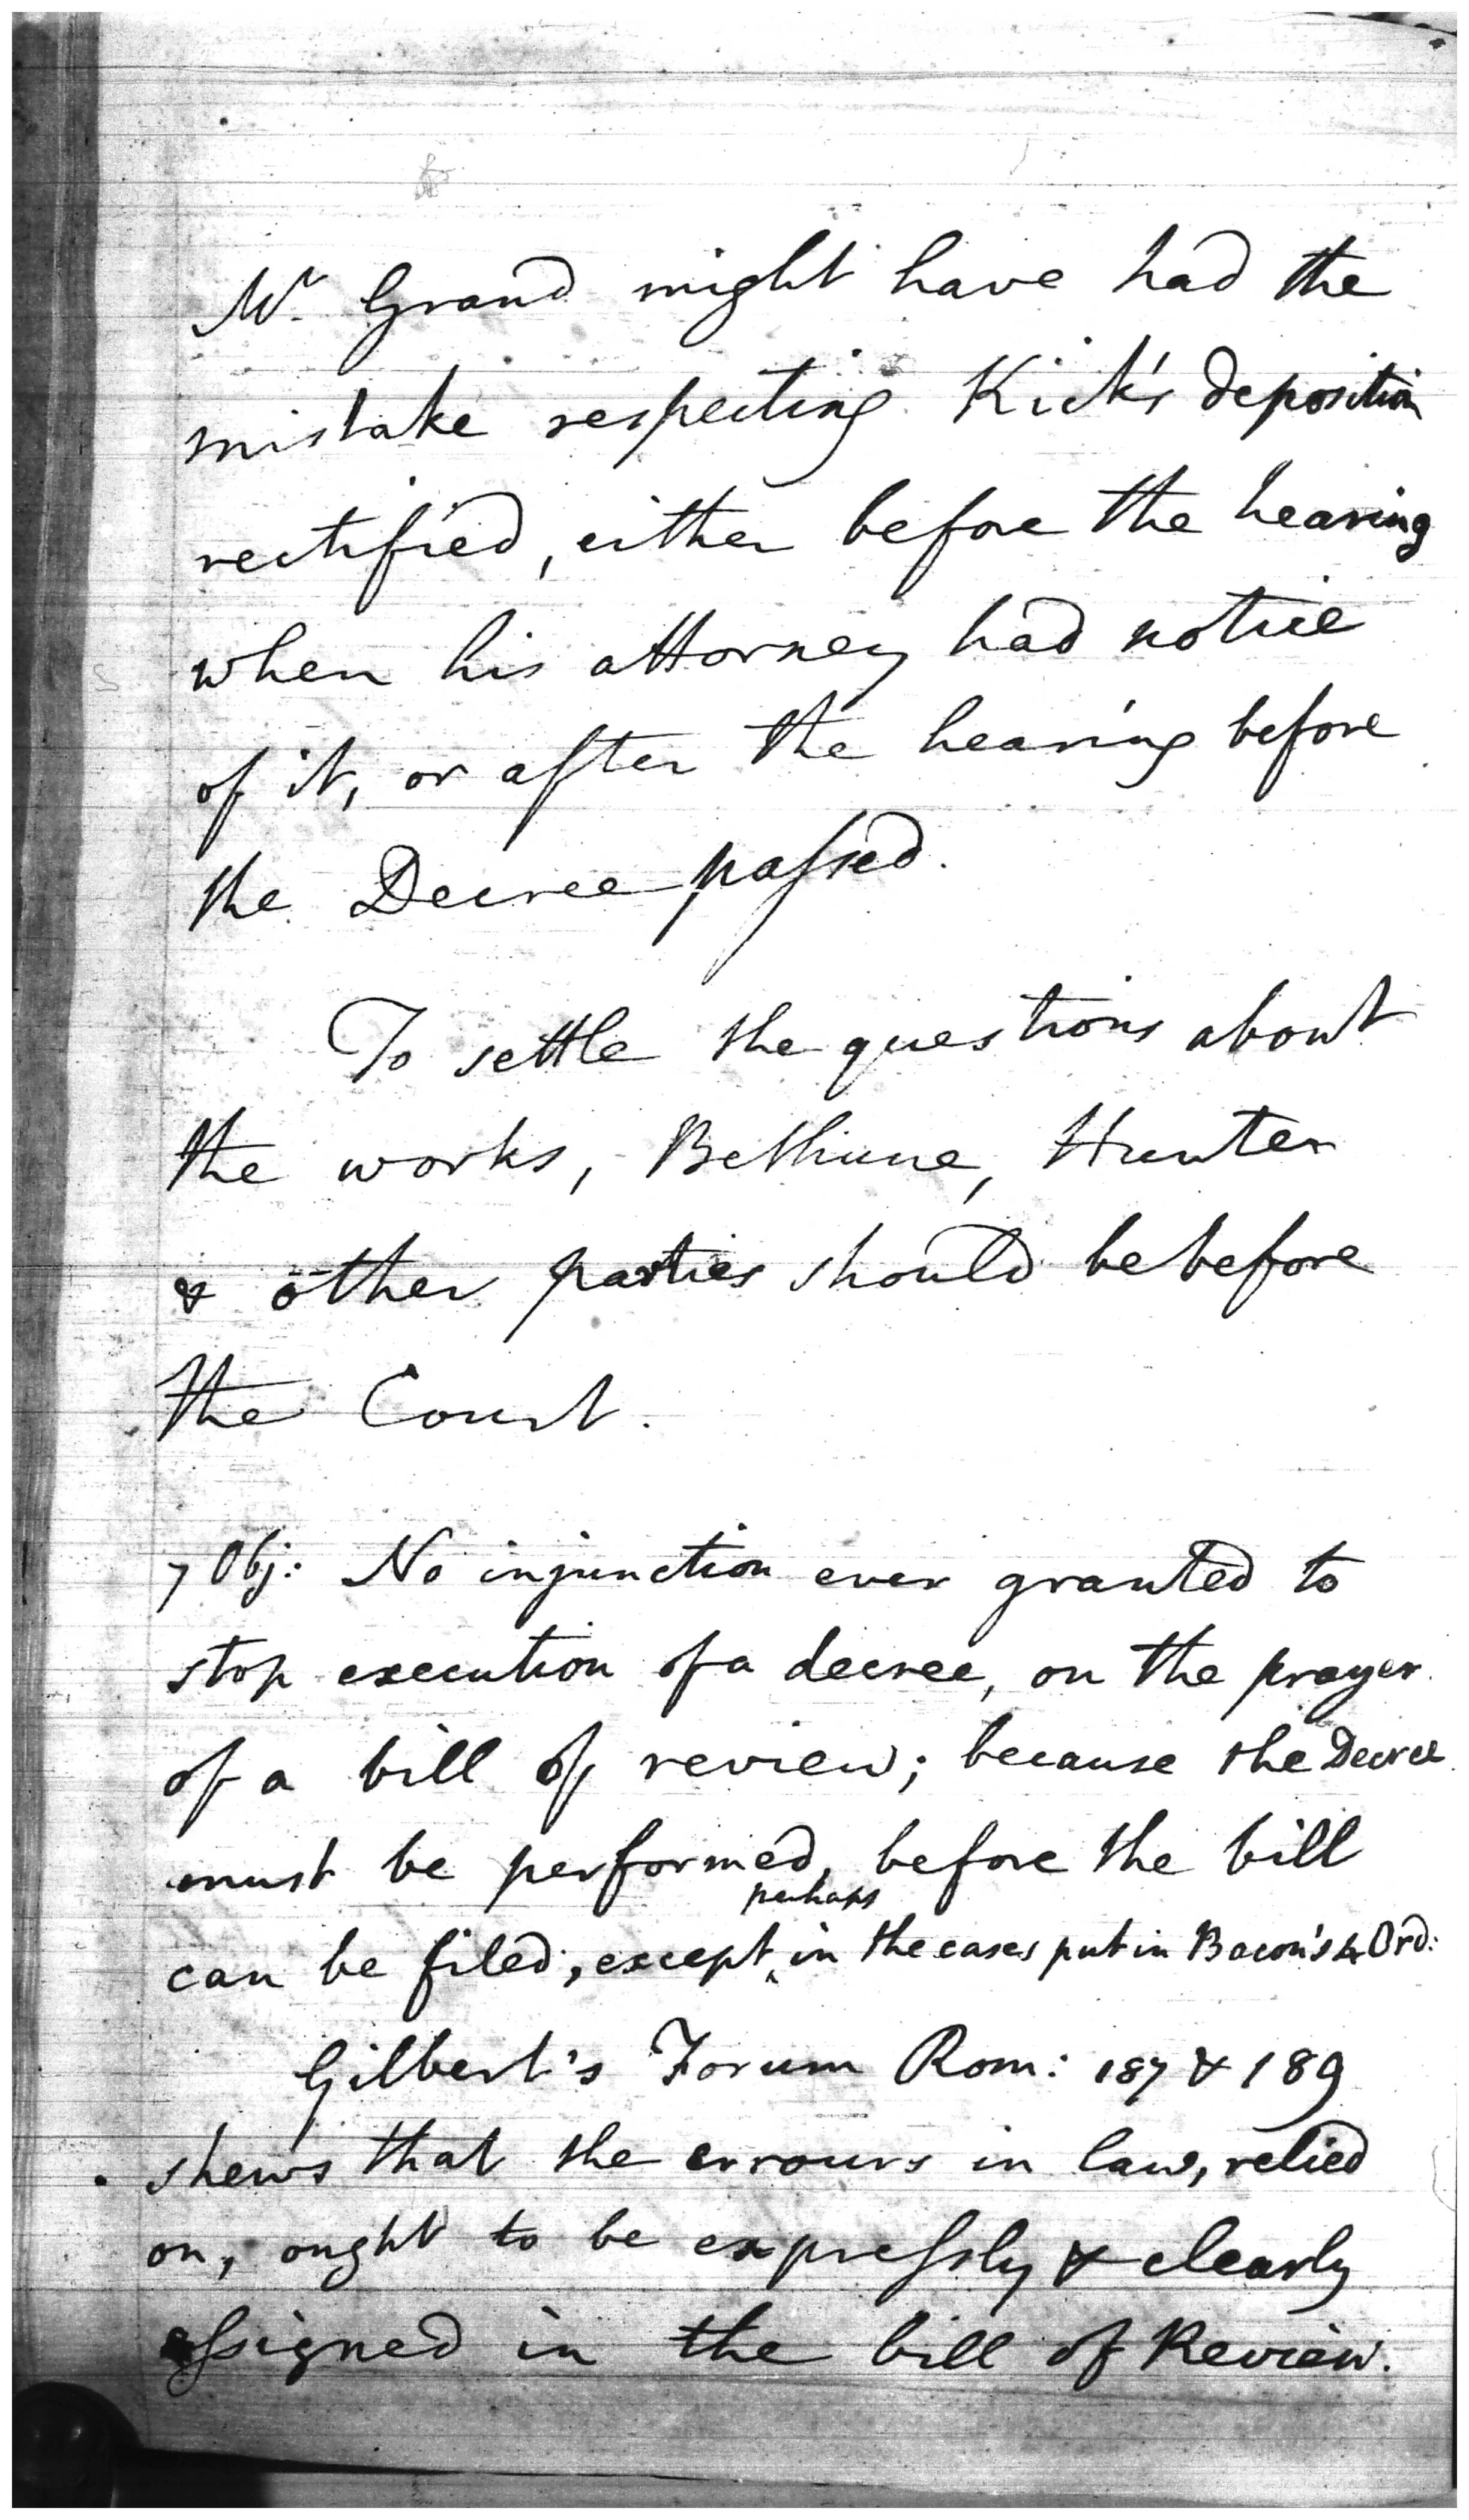 Mr. Grand might have had the
mistake respecting Kirk's deposition
rectified, either before the hearing
when his attorney had notice
of it, or after the hearing before
the Decree passed.
To settle the questions about
the works, Bethune, Hunter
& other parties should be before
the Court.
7 Obj: No injunction ever granted to
stop execution of a decree, on the prayer
of a bill of review; because the Decree
must be performed, before the bill
perhaps
can be filed, except in the cases put in Bacon's 4 Ord:
Gilbert's Forum Rom: 187 & 189
shews that the errours in law, relied
on, ought to be expressly & clearly
assigned in the bill of Review.